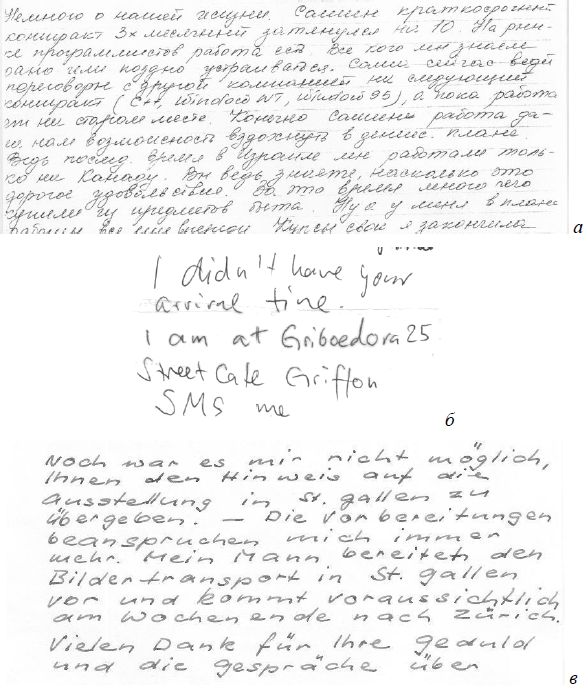 Немного о нашей жизни. Сашин краткосрочный
контракт 3х месячный затянулся на 10. На рын-
ке программистов работа есть. Все кого мы знаем
рано или поздно устраиваются. Саша сейчас ведёт
переговоры с другой компанией на следующий
контракт (C++, Windows NT, Windows 95), а пока работа
на старом месте. Конечно Сашина работа да-
ла нам возможность вздохнуть в денежн. плане.
Ведь послед. время в Израиле мы работали толь-
ко на Канаду. Вы ведь знаете, насколько это
дорогое удовольствие. За это время много чего
купили из предметов быта. Ну а у меня в плане
работы все еще Курсы свои я закончила
а
I didn't have your
arrival time.
I am at Griboedova 25
Street Cafe Griffon
SMS me
б
Noch war es mir nicht möglich,
Ihnen den Hinweis auf die
Ausstellung in St. gallen zu
übergeben. – Die Vorbereitungen
beanspruchen mich immer
mehr. Mein Mann bereitet den
Bildertransport in St. gallen
vor und kommt voraussichtlich
am Wochenende nach Zürich.
Vielen Dank für Ihre geduld
und die gespräche über
в